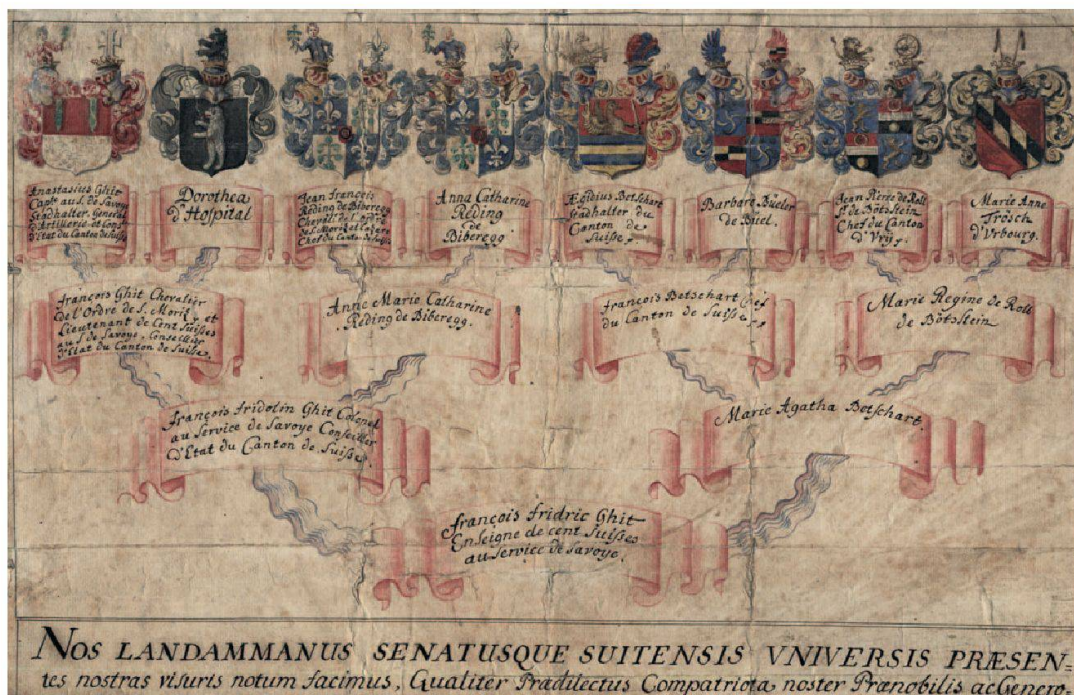 Anastasius Ghit
Capit. au S. de Savoye
Stadhalter, General
d'Artillerie, et Cons.
d'Etat du Canton de Suisse
Dorothea
d'Hospital
Jean françois
Reding de Biberegg
Cheval. de l'Ordre
de S. Moritz et Lazare
Chef du Canton de Suisse
Anna Catharine
Reding
de
Biberegg
Ægidius Betschart
Stadhalter du
Canton de
Suisse.
Barbara Büeler
de Biel
Jean Pierre de Roll
S. de Bötstein
Chef du Canton
d'Vrÿ.
Marie Anne
Trösch
d'Vrbourg.
françois Ghit Chevalier
de l'Ordre de S. Morit, et
Lieutenant de Cent Suisses
au S. de Savoye, Conseillier
d'Etat du Canton de Suisse.
Anne Marie Catharine
Reding de Biberegg.
françois Betschart Chef
du Canton de Suisse.
Marie Regine de Roll
de Bötstein
françois fridolin Ghit Colonel
au Service de Savoye Conseiller
d'Etat du Canton de Suisse.
Marie Agatha Betschart.
françois fridric Ghit
Enseigne de cent Suisses
au Service de Savoye.
NOS LANDAMMANUS SENATUSQUE SUITENSIS VNIVERSIS PRÆSEN=
tes nostras visuris notum facimus, Qualiter Prædilectus Compatriota noster Prænobilis ac Genero-